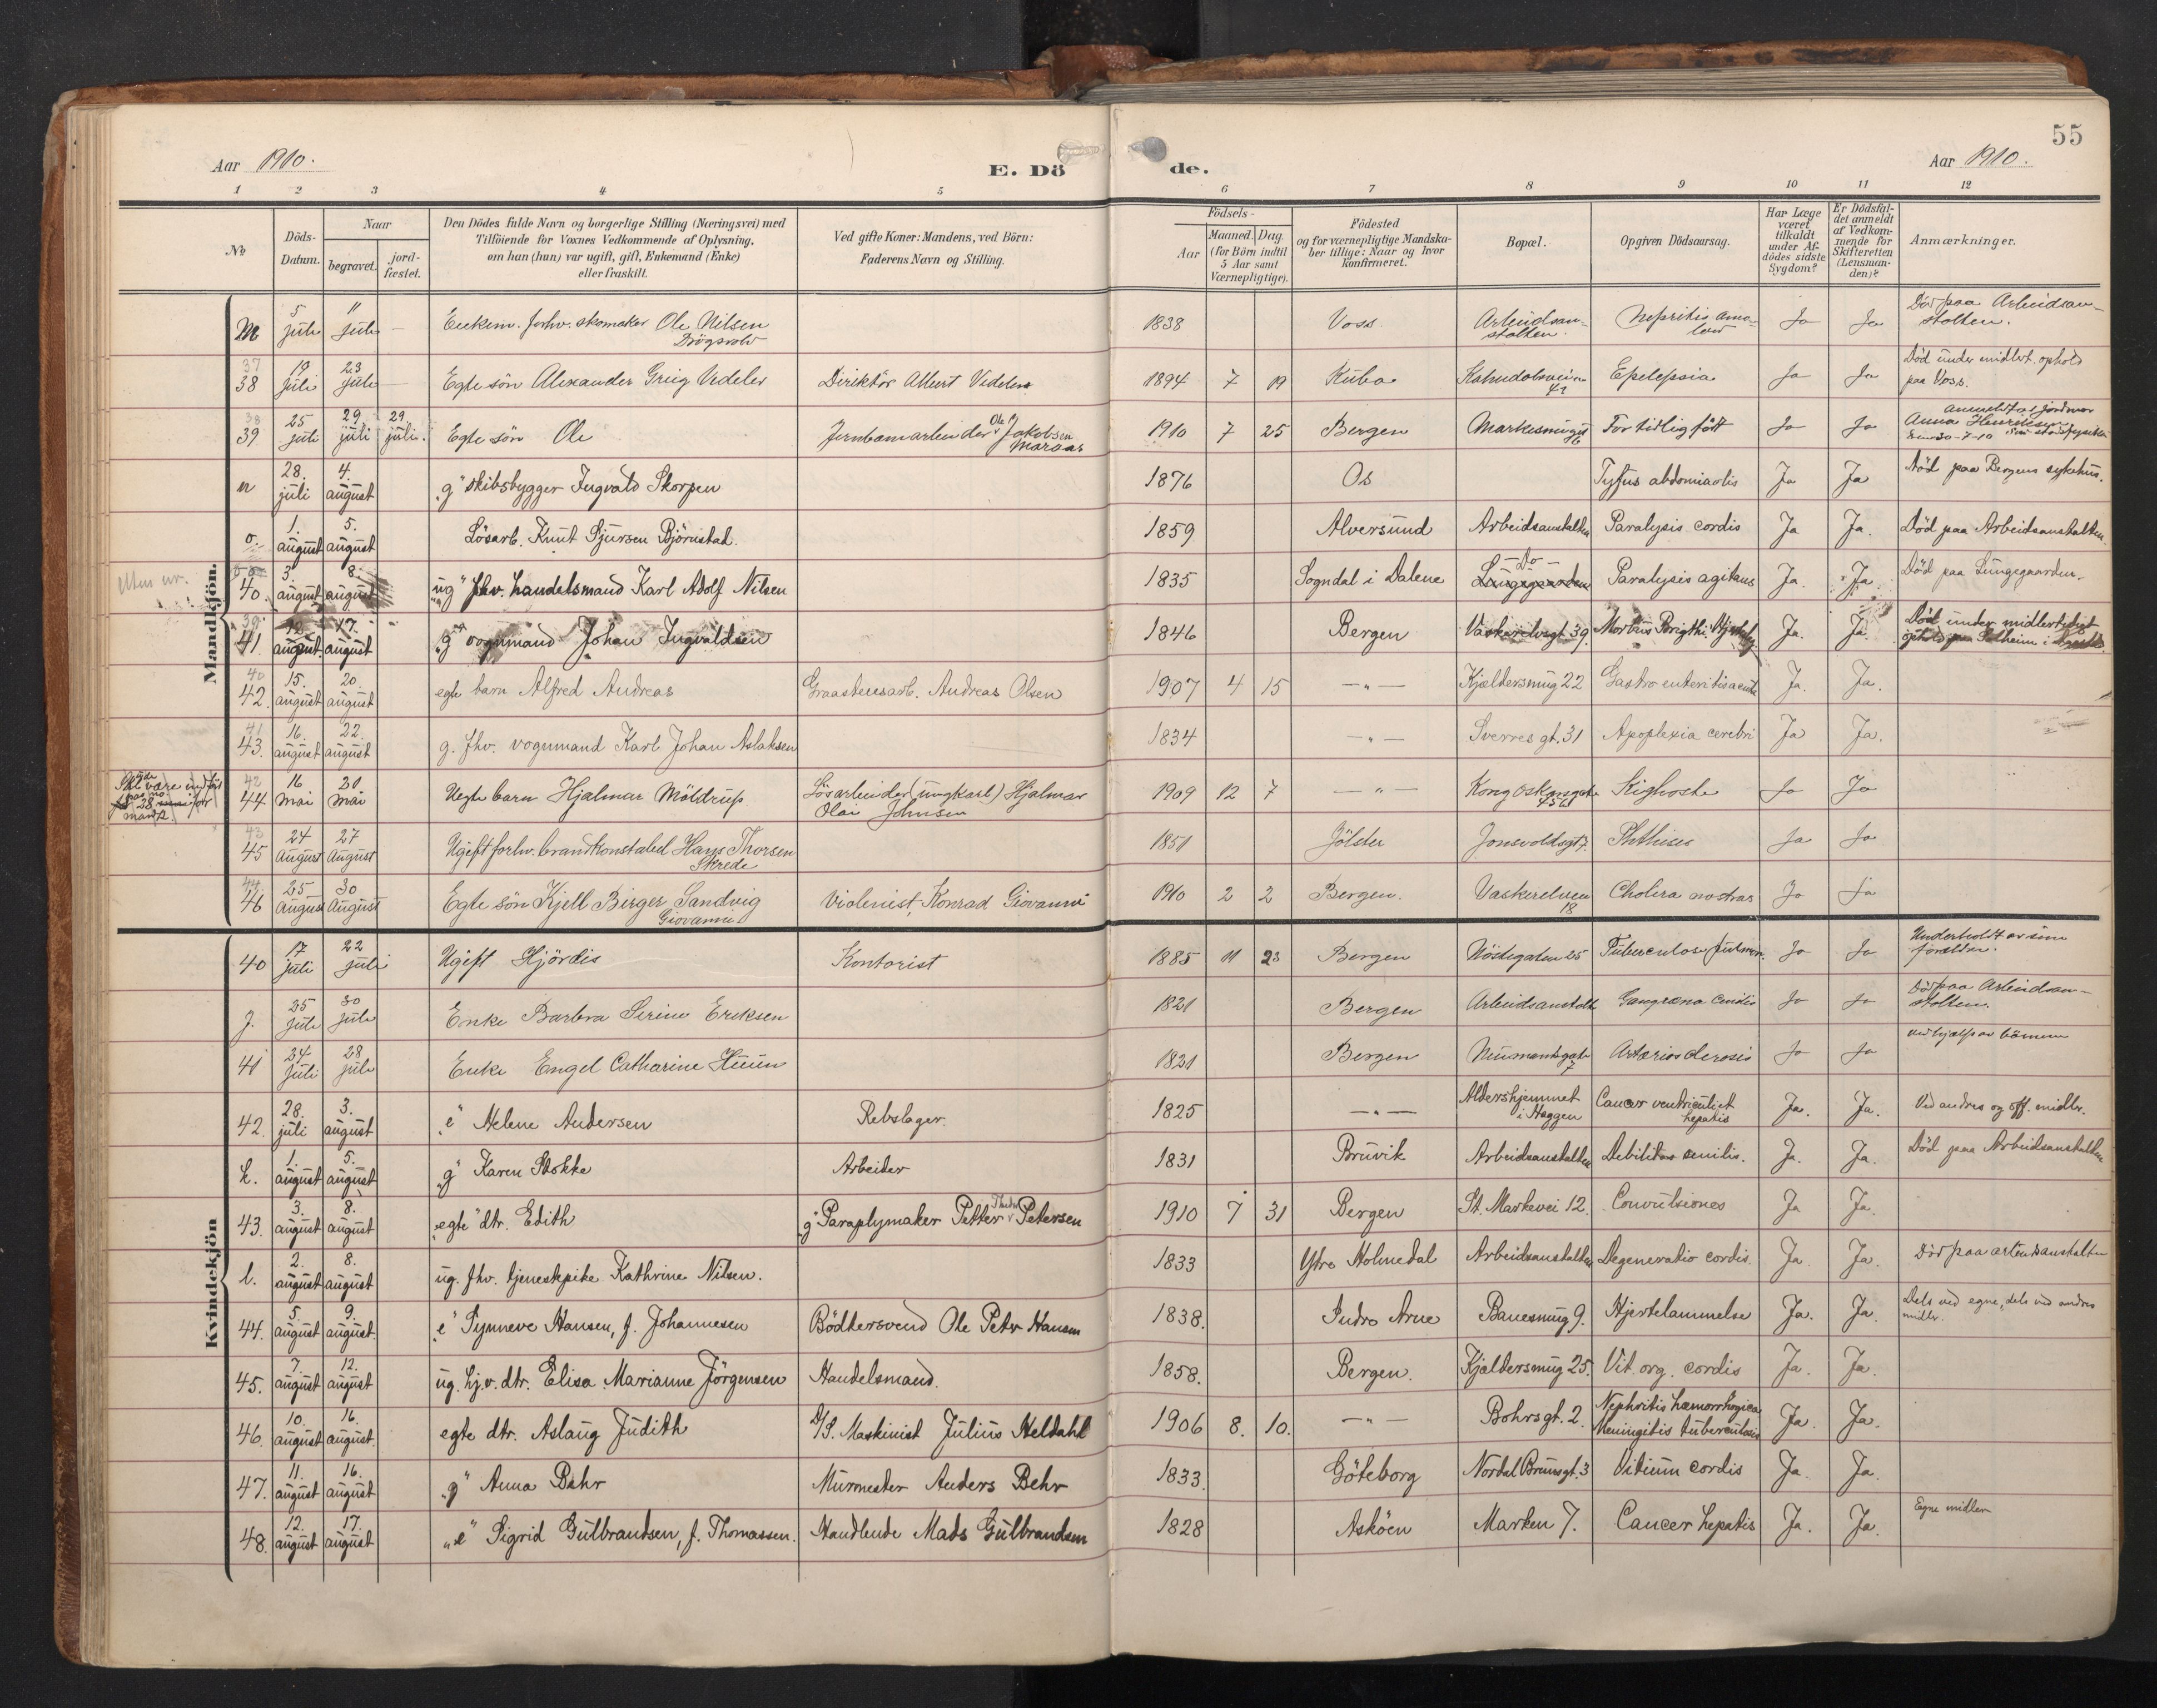 55
Aar 1910.
E. Dö de.
Aar 1910.
1 2 3 4 5 6 7 8 9 10 11 12
No.
Döds-Datum.
Naar
begravet.
jord-fæstet.
Den Dödes fulde Navn og borgerlige Stilling (Næringsvei) med
Tilföiende for Voxnes Vedkommende af Oplysning,
om han (hun) var ugift, gift, Enkemand (Enke)
eller fraskilt.
Ved gifte Koner: Mandens, ved Börn:
Faderens Navn og Stilling.
Födsels-
Aar
Maaned. Dag
(for Börn indtil
5 Aar samt
Værnepligtige).
Födested
og for værnepligtige Mandska-
ber tillige: Naar og hvor
konfirmeret.
Bopæl.
Opgiven Dödsaarsag.
Har Læge
været
tilkaldt
under Af-
dödes sidste
Sygdom?
Er Dödsfal-
det anmeldt
af Vedkom-
mende for
Skifteretten
(Lensman-
den)?
Anmærkninger.
Mandkjön.
M 5 juli 11 juli — Enkem. forhv. skomaker Ole Nilsen 1838 Voss Arbeidsanstalten Ja Ja Död paa Arbeidsanstalten.
37
38 19 juli 23 juli — Egte sön Alexander Grieg Vedeler Direktör Albert Vedeler 1894 7 19 Kuba 41 Epelepsia Ja Ja Död under midlert. ophold paa Voss.
38
39 25 juli 29 juli 29 juli. Egte sön Ole Jernbanearbeider Ole Jakobsen 1910 7 25 Bergen 6 For tidlig født Ja Ja Anna Henriksen
n 28. juli 4. august „g" skibsbygger Ingvald Skorpen 1876 Os Tyfus abdominalis Ja Ja Död paa Bergens sykehus.
o. 1. august 5. august Lösarb. Knut Sjursen Björnstad. 1859 Alversund Arbeidsanstalten Paralysis cordis Ja Ja. Död paa Arbeidsanstalten.
Uten nr. 40. 3. august 8. august „ug" fhv. handelsmand Karl Adolf Nilsen 1835 Sogndal i Dalene — Do — Lungegaarden Paralysis agitans Ja. Ja Död paa Lungegaarden.
39
41. 12. august. 17. august „g" vognmand Johan Ingvaldsen 1846 Bergen Vaskerelvsgt 39. Ja. Ja. Död under midlertidigt
40
42. 15. august 20. august egte barn Alfred Andreas Graastensarb. Andreas Olsen 1907 4 15 — " — Kjeldersmug 22 Gastro enteritis acuta Ja. Ja.
41
43. 16. august 22. august g. fhv. vognmand Karl Johan Aslaksen 1834 — " — Sverres gt. 31 Apoplexia cerebri Ja Ja.
42
44. 16 mai 20 mai Uegte barn Hjalmar Möldrup Lösarbeider (ungkarl) Hjalmar Olai Johnsen 1909 12 7 — " — Kong oskarsgate Kighoste Ja Ja
43
45 24 August 27 August Ugift forhv. brandkonstabel Hans Thorsen Skrede 1851 Jölster Jonsvoldsgt 7. Phthises Ja Ja
44
46 25 August 30 August Egte sön Kjell Birger Sandvig Giovanni Violinist, Konrad Giovanni 1910 2 2 Bergen. Vaskerelven 18 Cholera nostras Ja Ja
Kvindekjön
40 17 juli 22 juli Ugift Hjördis Kontorist 1885 11 23 Bergen Nöstegaten 25 Tuberculos. pulmon. Ja Ja Underholdt av sine forældre.
J. 25 juli 30 juli Enke Barbra Serine Eriksen 1821 Bergen Arbeidsanstalt Ja Ja Död paa Arbeidsanstalten.
41 24 juli 28 juli Enke Engel Catharine Huun 1821 Bergen Neumannsgate 7 Arteriosclerosis Ja Ja Ved hjælp av börnene
42. 28. juli 3. august „e" Helene Andersen Rebslager. 1825 — " — Aldershjemmet i Haggen Cancer ventriculi et hepatis Ja. Ja. Ved andres og off. midler.
k. 1. august 5. august „g" Karen Stokke Arbeider 1831 Bruvik Arbeidsanstalten Debilitas senilis. Ja. Ja. Död paa Arbeidsanstalten
43. 3. august 8. august „egte" dtr. Edith „g" Paraplymaker Petter Petersen 1910 7 31 Bergen St. Markevei 12. Convulsiones Ja Ja.
l. 2. august 8. august ug. fhv. tjenestpike Kathrine Nilsen. 1833 Ytre Holmedal Arbeidsanstalten Degeneratio cordis. Ja Ja. Död paa arbeidsanstalten
44. 5. august 9. august. „e" Synneve Hansen, f. Johannesen Bödkersvend Ole Peter Hansen 1838. Indre Arne Banesmug 9. Hjertelammelse Ja. Ja. Dels ved egne, dels ved andres midler.
45. 7. august 12. august ug. hj.v. dtr. Elisa Marianne Jörgensen Handelsmand. 1858. Bergen. Kjeldersmug 25. Vit. org. cordis Ja. Ja.
46. 10. august 16. august. egte dtr. Aslaug Judith D/S. Maskinist Julius Heldahl 1906 8. 10. — " — Bohrsgt. 2. Nephritis hæmorrhagica Meningitis tuberculosis Ja. Ja.
47. 11. august 16. august „g" Anna Behr Murmester Anders Behr 1833. Göteborg Nordal Brunsgt. 3 Vitium cordis Ja. Ja.
48. 12. august 17. august „e" Sigrid Gulbrandsen, f. Thomassen. Handlende Mads Gulbrandsen 1828 Asköen Marken 7. Cancer hepatis Ja. Ja. Egne midler